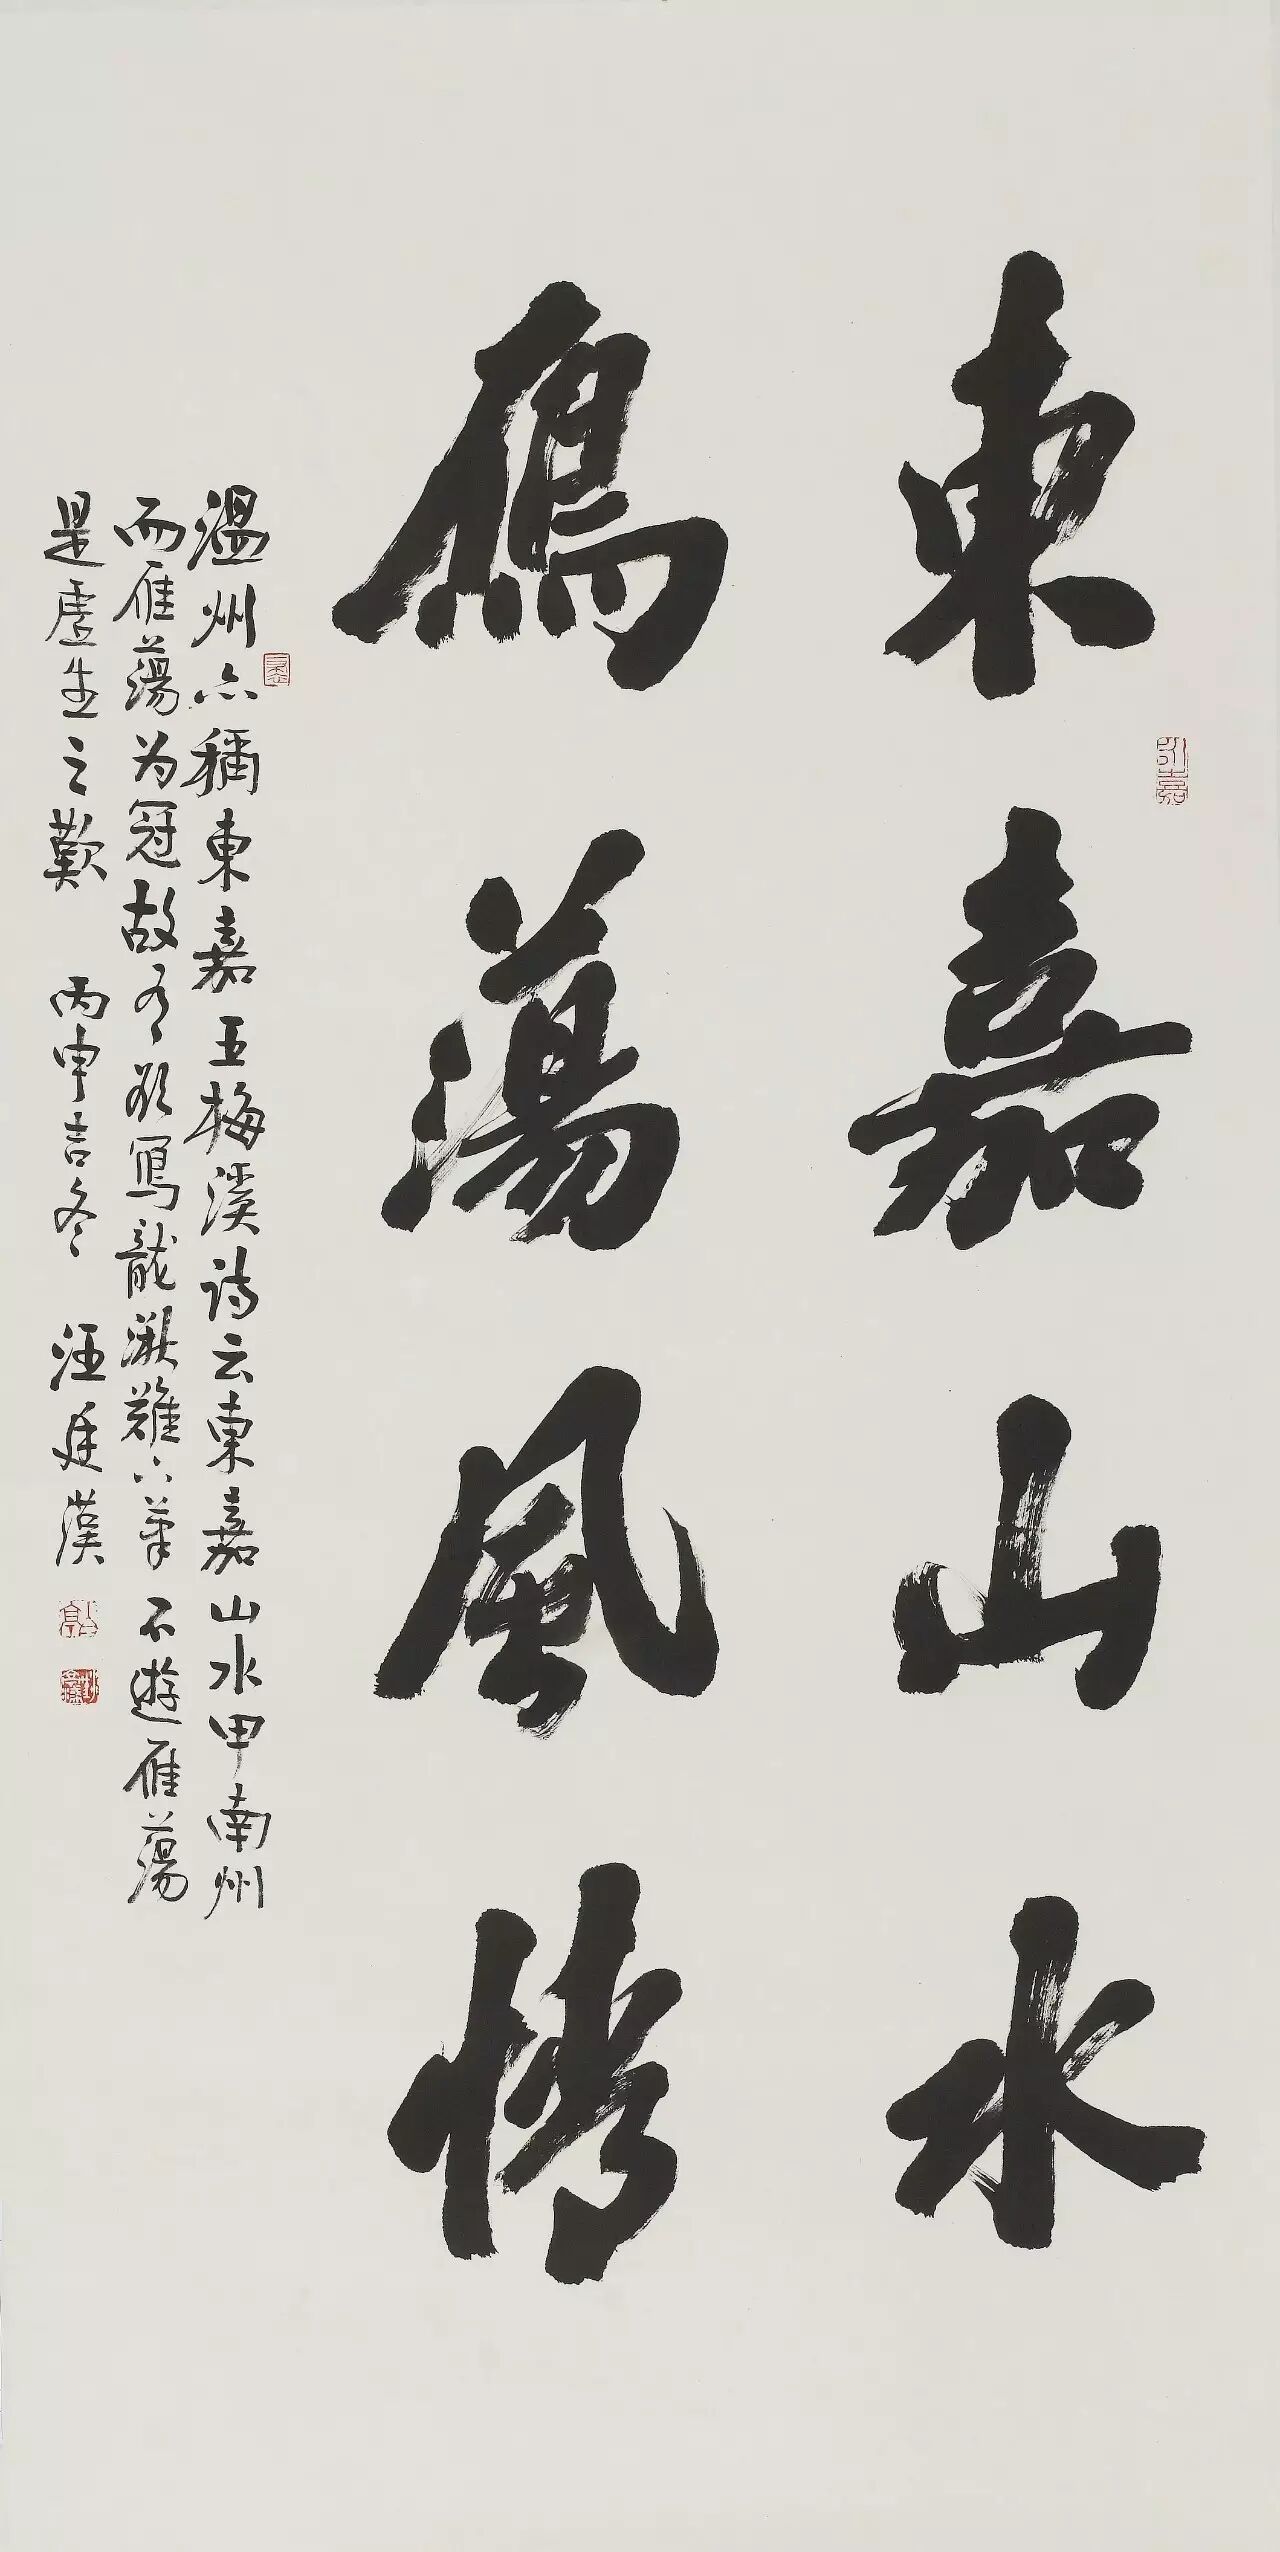 東嘉山水
鴈蕩風情
溫州亦稱東嘉王梅溪詩云東嘉山水甲南州
而雁蕩为冠故有欲寫龍湫難下筆不遊雁蕩
是虛生之歎 丙申吉冬 汪廷漢
永嘉